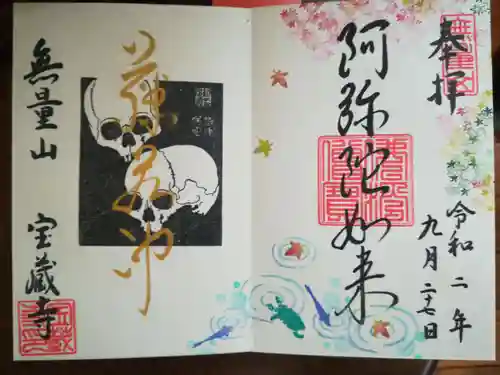 奉拝
阿弥陀如来
令和二年
九月二十七日
藤若冲
無量山 宝蔵寺